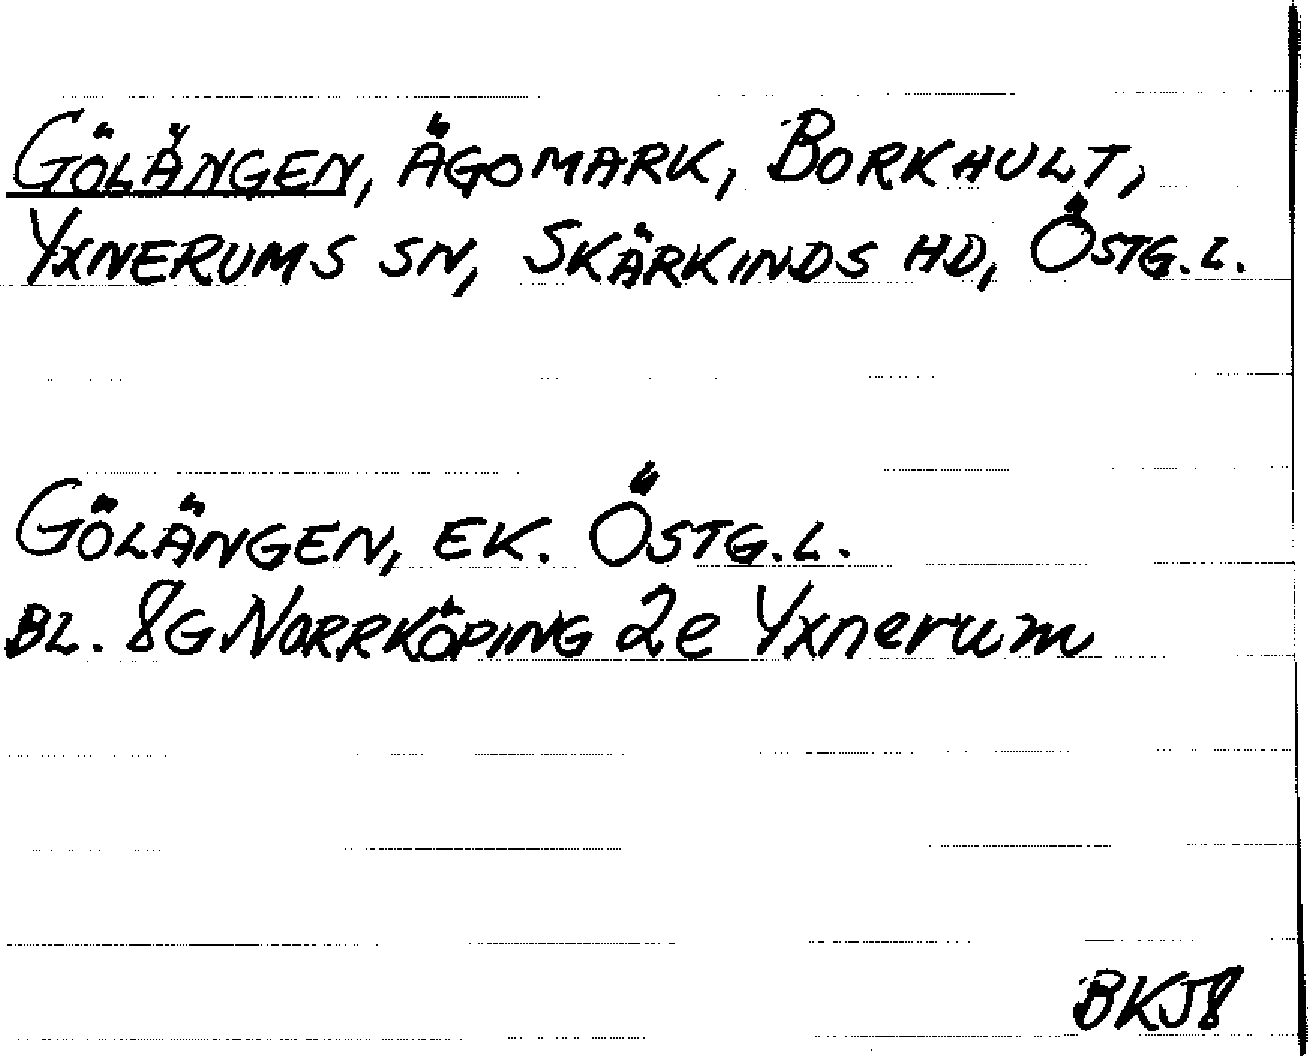 GÖLÄNGEN, ÄGOMARK, BORKHULT,
YXNERUMS SN, SKÄRKINDS HD, ÖSTG.L.
GÖLÄNGEN, EK. ÖSTG.L.
BL. 8G NORRKÖPING 2e Yxnerum
BKJ8